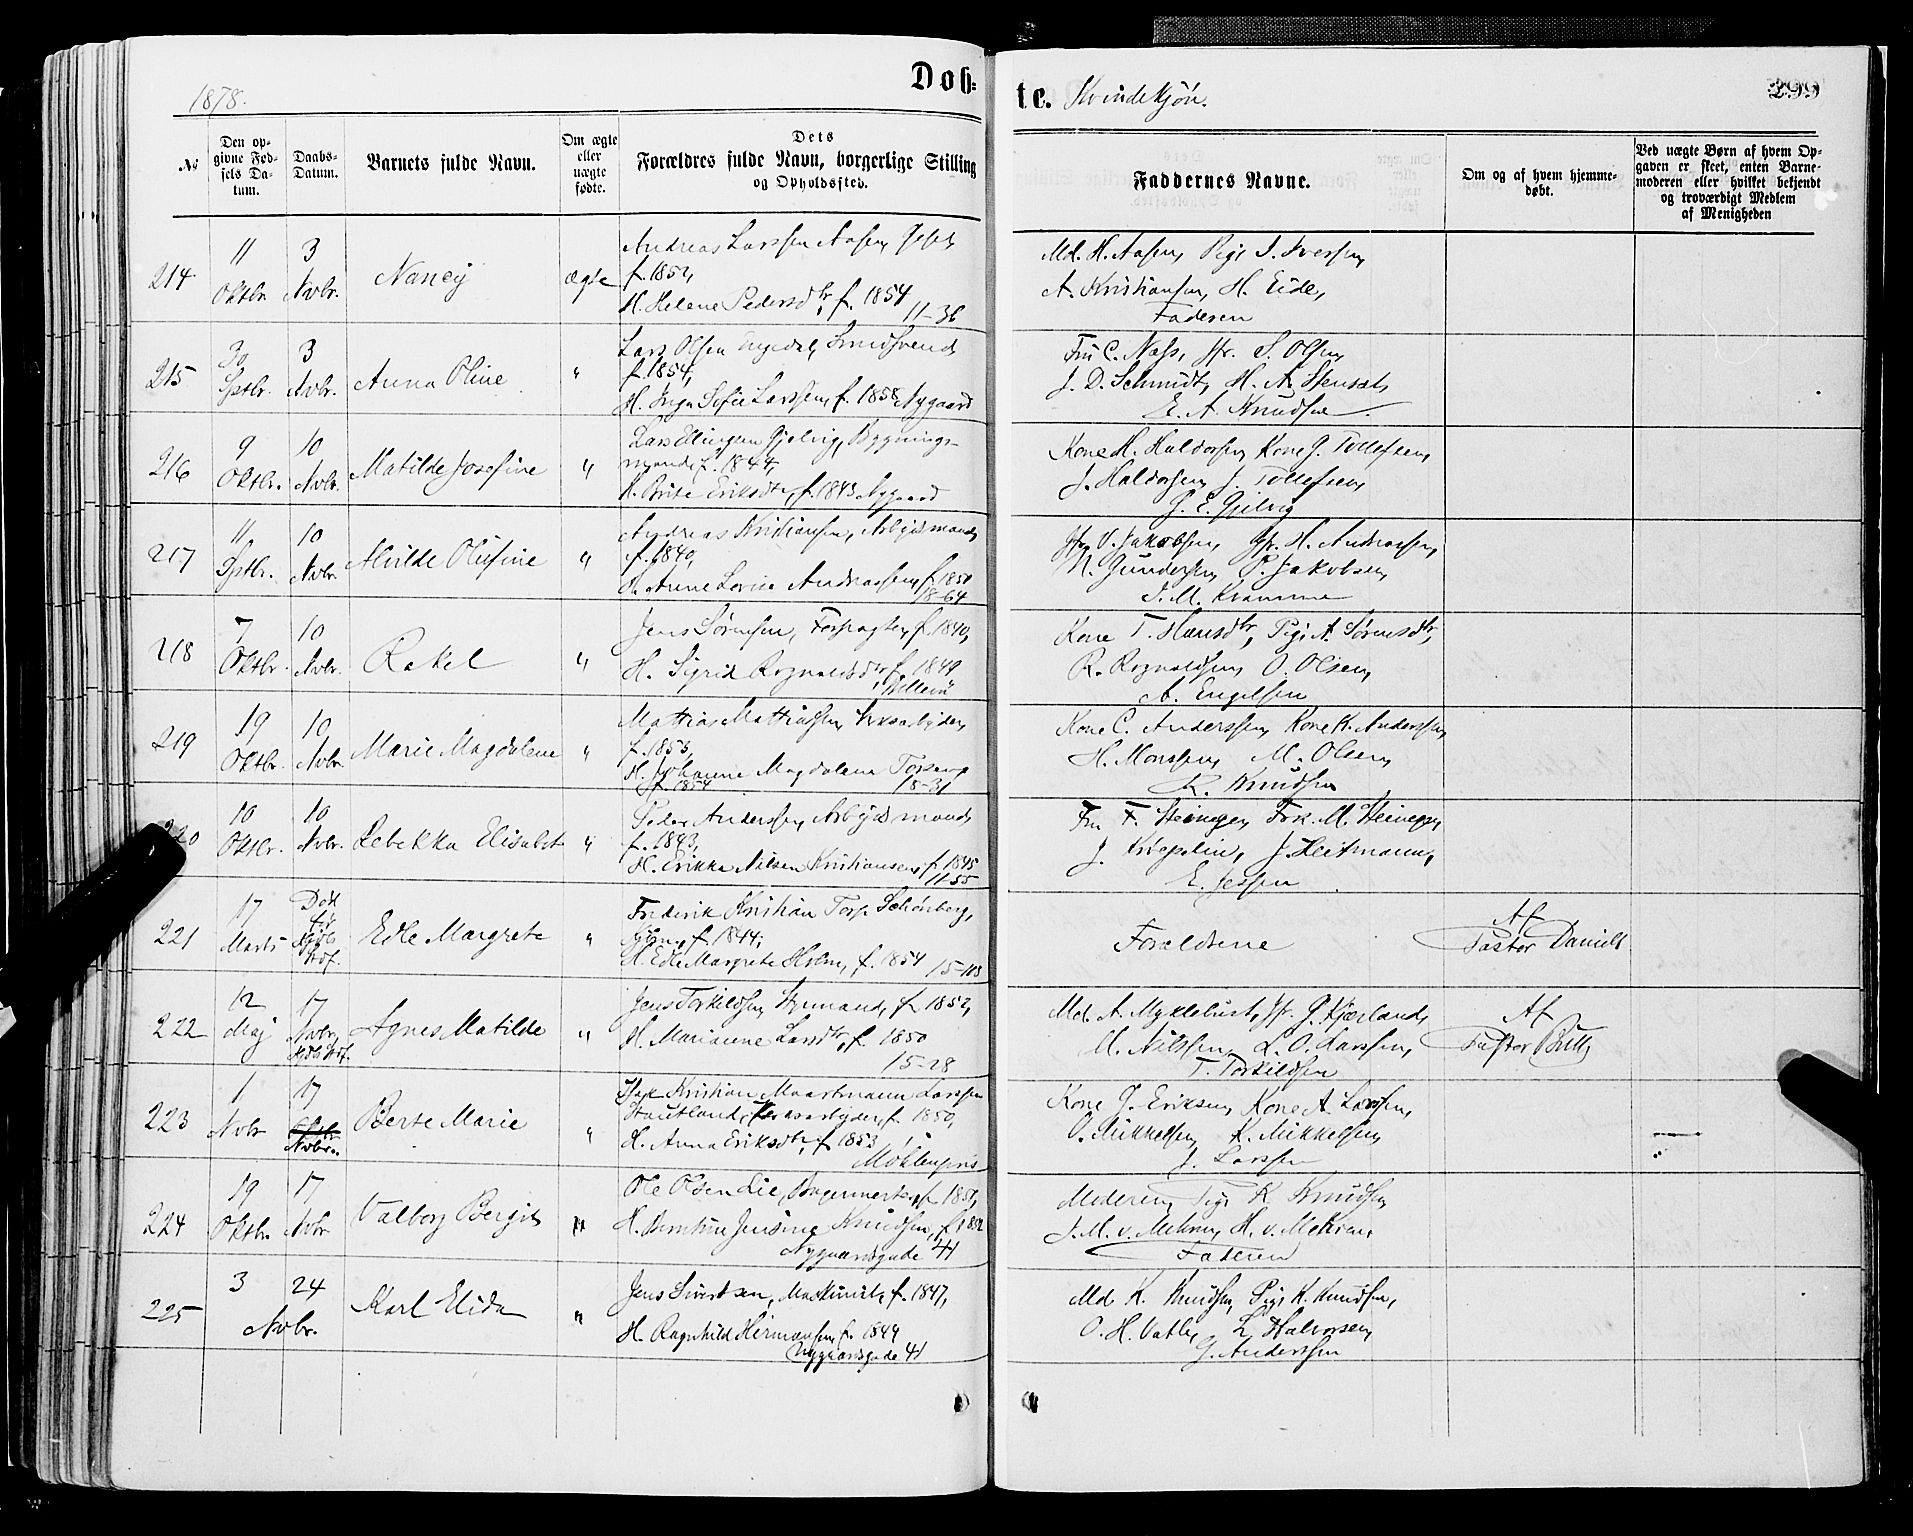 1878.
Døb-
te. Kvindekjøn.
299
№
Den op-
givne Fød-
sels Da-
tum.
Daabs-
Datum.
Barnets fulde Navn.
Om ægte
eller
uægte
fødte.
Dets
Forældres fulde Navn, borgerlige Stilling
og Opholdssted.
Faddernes Navne.
Om og af hvem hjemme-
døbt.
Ved uægte Børn af hvem Op-
gaven er skeet, enten Barne-
moderen eller hvilket bekjendt
og troværdigt Medlem
af Menigheden
214
11
Oktbr
3
Nvbr.
Nancy
ægte
Andreas Larssen Aasen,
f. 1852,
H. Helene Pedersdtr, f. 1854
11-36
Md. H. Aasen, Pige I. Iversen,
A. Kristiansen, H. Eide,
Faderen
215
30
Sptbr.
3
Nvbr.
Anna Oline
"
Lars Olsen
f. 1854,
H. Inga Sofie Larssen, f. 1858 Nygaard
Fru C. Næss, Jfr. S. Olsen,
J. D. Schmidt, H. A.
E. A. Knudsen
216
9
Oktbr.
10
Nvbr.
Matilde Josefine
"
Lars Ellingsen Gjelvig, Bygnings-
mand, f. 1844,
H. Brite Eriksdtr, f. 1843 Nygaard
Kone M. Haldorsen, Kone G. Tollefsen,
J. Haldorsen, J. Tollefsen,
P. E. Gjelvig
217
11
Sptbr.
10
Nvbr.
Alvilde Olufine
"
Andreas Kristiansen, Arbeidsmand,
f. 1840,
H. Anne Lovise Andreassen, f. 1850
18-64
Jfr. V. Jakobsen, Jfr. H. Andreassen,
N. Gundersen, P. Jakobsen,
J. M. Kramme
218
7
Oktbr.
10
Nvbr.
Rakel
"
Jens Sørensen, Forpagter, f. 1840,
H. Sigrid Rognaldsdtr, f. 1849
Kone T. Hansdtr, Pige A. Sørensdtr,
R. Rognaldsen, O. Olsen,
A. Engelsen
219
19
Oktbr.
10
Nvbr.
Marie Magdalene
"
Mattias Mattiassen,
f. 1853,
H. Johanne Magdalene
f. 1854
18-31
Kone C. Anderssen, Kone K. Anderssen,
H. Monssen, M. Olsen,
R. Knudsen
220
10
Oktbr.
10
Nvbr.
Rebekka Elisabet
"
Peder Anderssen, Arbeidsmand,
f. 1843,
H. Erikke Nilsen Kristiansen, f. 1845
11-55
Fru F. Heinege, Frk. M. Heinege,
J. Krepelin, J. Heitmann,
E. Jessen
221
17
Marts
Død
før
Edle Margrete
"
Frederik Kristian Torp Schønberg,
f. 1844,
H. Edle Margrete Holm, f. 1854
Forældrene
Af
Pastor Daniels
222
12
Maj
17
Nvbr.
Agnes Matilde
"
Jens Torkildsen, Styrmand, f. 1852,
H. Marianne Larsdtr, f. 1850
15-28
Md. A. Myklebust, Jfr. G. Kjærland,
M. Nilssen, L. O. Larssen,
T. Torkildsen
Af
Pastor
223
1
Nvbr
17
Nvbr.
Berte Marie
"
Kristian Maartmann Larssen
f. 1850,
H. Anna Eriksdtr, f. 1853
Møhlenpris
Kone G. Eriksen, Kone A. Larssen,
O. Mikkelsen, K. Mikkelsen,
J. Larssen
224
19
Oktbr.
17
Nvbr
Valborg Bergit
"
Ole Olsen Lie, Bagermester,
H. Jensine Knudsen, f. 1852
Nygaardsgade 41
Moderen, Pige K. Knudsen,
J. M. v. Mehren, H. v. Mehren,
Faderen
225
3
24
Nvbr.
Karl Elida
"
Jens Sivertsen, Maskinist, f. 1847,
H. Ragnhild Hermansen, f. 1849
Nygaardsgade 41
Md. K. Knudsen, Pige K. Knudsen,
O. H. Vatle, L. Halvorsen,
G. Anderssen